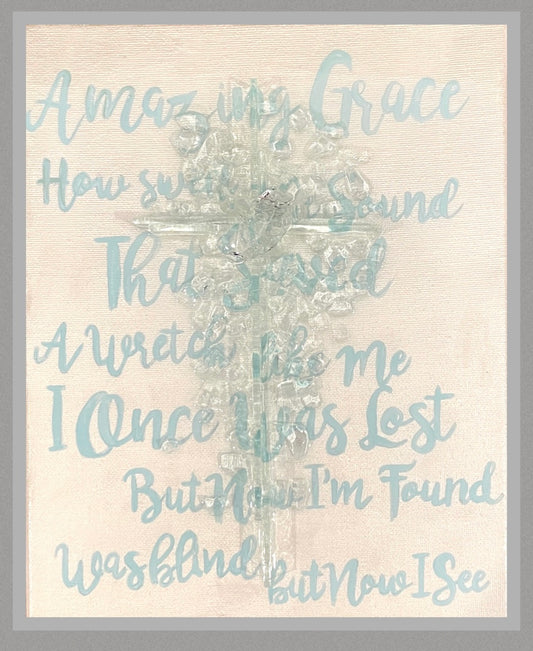 Amazing Grace
How Sound
That Saved
A Wretch like Me
I Once Was Lost
But Now I'm Found
Was blind but Now I See